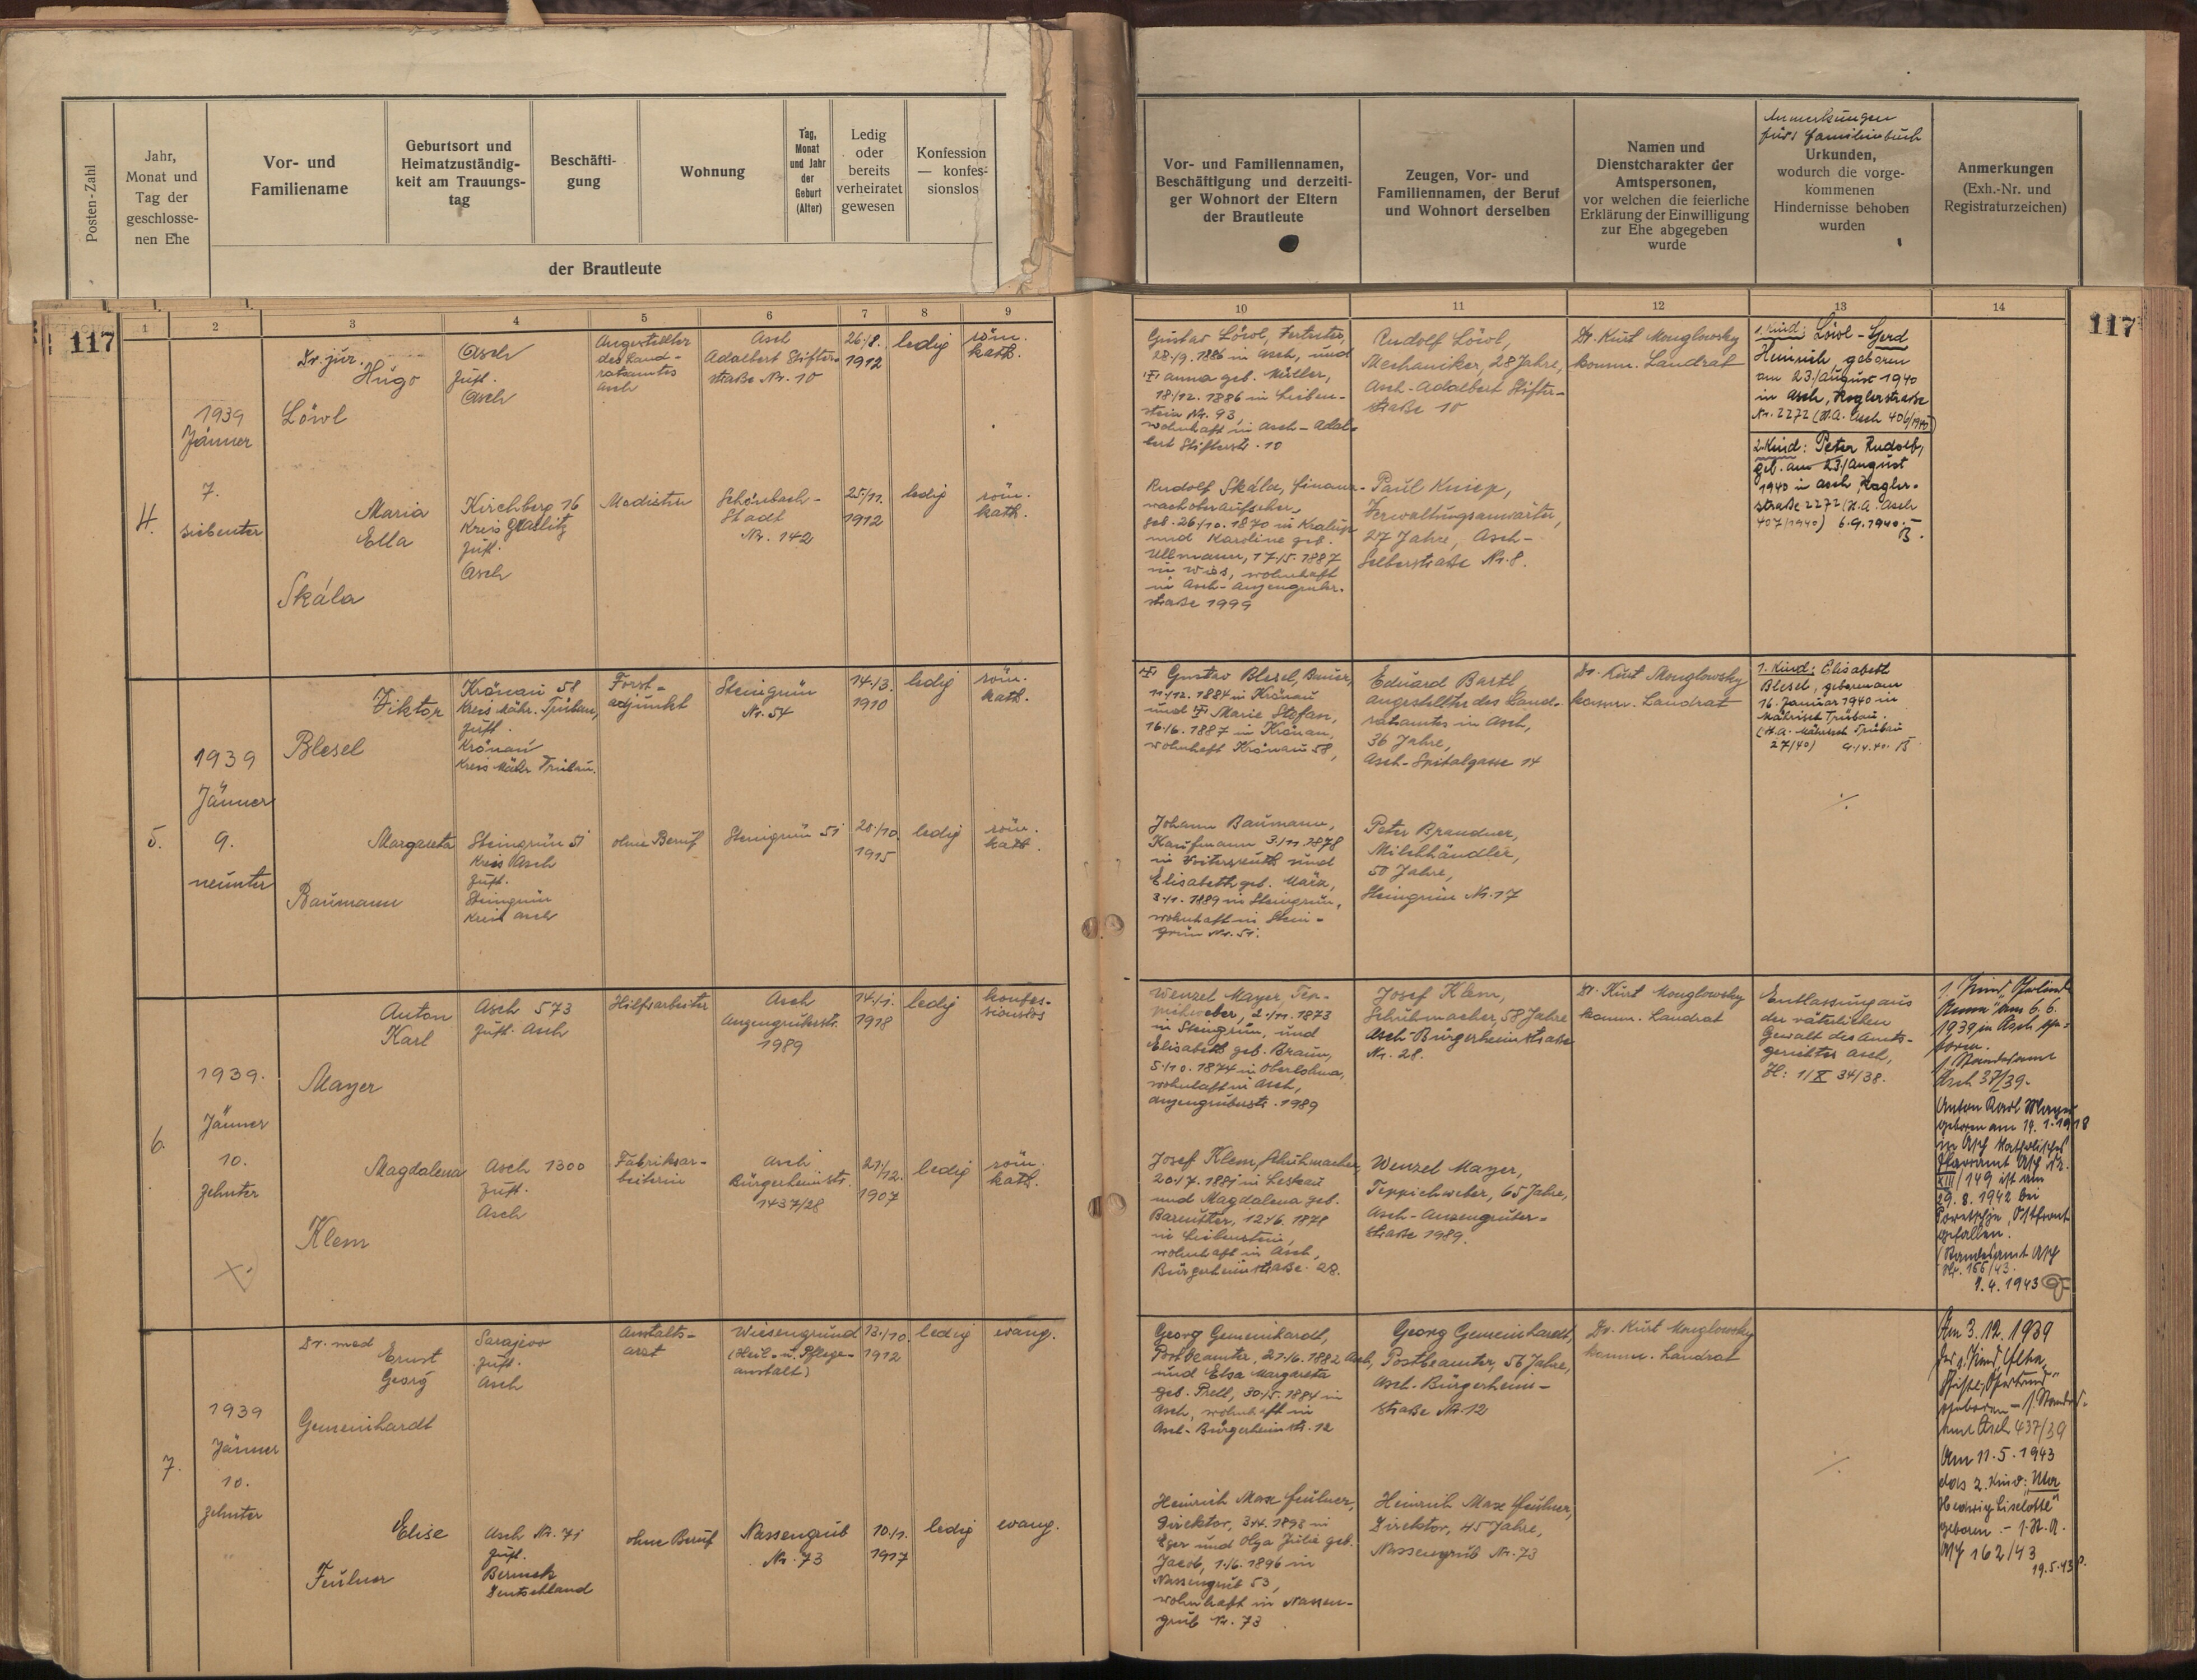 Posten-Zahl
Jahr,
Monat und
Tag der
geschlosse-
nen Ehe
Vor- und
Familiename
Geburtsort und
Heimatzuständig-
keit am Trauungs-
tag
Beschäfti-
gung
Wohnung
Tag,
Monat
und Jahr
der
Geburt
(Alter)
Ledig
oder
bereits
verheiratet
gewesen
Konfession
— konfes-
sionslos
der Brautleute
Vor- und Familiennamen,
Beschäftigung und derzeiti-
ger Wohnort der Eltern
der Brautleute
Zeugen, Vor- und
Familiennamen, der Beruf
und Wohnort derselben
Namen und
Dienstcharakter der
Amtspersonen,
vor welchen die feierliche
Erklärung der Einwilligung
zur Ehe abgegeben
wurde
Anmerkungen
fürs Familienbuch
Urkunden,
wodurch die vorge-
kommenen
Hindernisse behoben
wurden
Anmerkungen
(Exh.-Nr. und
Registraturzeichen)
1 2 3 4 5 6 7 8 9
10 11 12 13 14
117
117
4.
1939
Jänner
7.
siebenter
Dr. jur.
Hugo
Löwl
Asch
Zust.
Asch
Angestellter
des Land-
ratsamtes
Asch
Asch
Adalbert Stifter-
straße Nr. 10
26./8.
1912
ledig
röm.
kath.
Maria
Ella
Skála
Kirchberg 16
Kreis Graslitz
Zust.
Asch
Modistin
Schönbach-
Stadt
Nr. 142
25./11.
1912
ledig
röm.
kath.
Gustav Löwl, Vertreter,
28./9. 1886 in Asch, und
Anna geb. Müller,
18./12. 1886 in Lieben-
stein Nr. 93,
wohnhaft in Asch - Adal-
bert Stifterstr. 10
Rudolf Skála, Finanz-
wachoberaufseher,
geb. 26./10. 1870 in Kralup
und Karoline geb.
Ullmann, 17./5. 1887
in Wies, wohnhaft
in Asch - Anzengruber-
straße 1999
Rudolf Löwl,
Mechaniker, 28 Jahre,
Asch - Adalbert Stifter-
straße 10
Paul
Verwaltungsanwärter,
27 Jahre, Asch -
Selberstraße Nr. 8.
Dr. Kurt Monglowsky
komm. Landrat
1. Kind: Löwl - Gerd
Heinrich, geboren
am 23./August 1940
in Asch, Roglerstraße
Nr. 2272 (St.A. Asch 406/1940)
2. Kind: Peter Rudolf,
geb. am 23./August
1940 in Asch, Rogler-
straße 2272 (St.A. Asch
407/1940) 6.9.1940.
5.
1939
Jänner
9.
neunter
Viktor
Blesel
Krönau 58
Kreis Mähr. Trübau,
Zust.
Krönau
Kreis Mähr. Trübau.
Forst-
adjunkt
Steingrün
Nr. 54
14./3.
1910
ledig
röm.
kath.
Margareta
Baumann
Steingrün 51
Kreis Asch
Zust.
Steingrün
Kreis Asch
ohne Beruf
Steingrün 51
28./10.
1915
ledig
röm.
kath.
Gustav Blesel, Bauer,
11./12. 1884 in Krönau
und Marie Stefan,
16./6. 1887 in Krönau,
wohnhaft Krönau 58,
Johann Baumann,
Kaufmann 3./11. 1878
in Voitersreuth und
Elisabeth geb.
3./1. 1889 in Steingrün,
wohnhaft in Stein-
grün Nr. 51.
Eduard Bartl,
Angestellter des Land-
ratsamtes in Asch,
36 Jahre,
Asch - Spitalgasse 14
Peter Brandner,
Milchhändler,
50 Jahre,
Steingrün Nr. 17
Dr. Kurt Monglowsky
komm. Landrat
1. Kind: Elisabeth
Blesel, geboren am
16. Januar 1940 in
Mährisch Trübau.
(St.A. Mährisch Trübau
27/40)
6.
1939.
Jänner
10.
zehnter
Anton
Karl
Mayer
Asch 573
Zust. Asch
Hilfsarbeiter
Asch
Anzengruberstr.
1989
14./1.
1918
ledig
konfes-
sionslos
Magdalena
Klem
Asch 1300
Zust.
Asch
Fabriksar-
beiterin
Asch
Bürgerheimstr.
1437/28
21./12.
1907
ledig
röm.
kath.
Wenzel Mayer, Tep-
pichweber, 2./11. 1873
in Steingrün, und
Elisabeth geb. Braun,
5./10. 1874 in Oberlohma,
wohnhaft in Asch,
Anzengruberstr. 1989
Josef Klem, Schuhmacher,
20./7. 1881 in Leskau
und Magdalena geb.
Bareuther, 12./6. 1878
in Liebenstein,
wohnhaft in Asch,
Bürgerheimstraße 28.
Josef Klem,
Schuhmacher, 58 Jahre
Asch - Bürgerheimstraße
Nr. 28.
Wenzel Mayer,
Teppichweber, 65 Jahre,
Asch - Anzengruber-
straße 1989.
Dr. Kurt Monglowsky
komm. Landrat
Entlassung aus
der väterlichen
Gewalt des Amts-
gerichtes Asch,
Zl: 1/X 34/38.
1. Kind
am 6. 6.
1939 in Asch ge-
boren.
Standesamt
Asch 37/39.
Anton Karl Mayer
geboren am 14. 1. 1918
in Asch Katholisches
Pfarramt Asch Nr.
XIII/149 ist am
29. 8. 1942 bei
Ostfront
gefallen.
(Standesamt Asch
Nr. 166/43.
9.4.1943
7.
1939
Jänner
10.
zehnter
Dr. med
Ernst
Georg
Gemeinhardt
Sarajevo
Zust.
Asch
Anstalts-
arzt
Wiesengrund
(Heil- u. Pflege-
anstalt)
13./10.
1912
ledig
evang.
Elise
Feulner
Asch Nr. 71
Zust.
Berneck
Deutschland
ohne Beruf
Nassengrub
Nr. 73
10./1.
1917
ledig
evang.
Georg Gemeinhardt,
Postbeamter, 21./6. 1882 Asch,
und Elsa Margareta
geb. Prell, 30./5. 1884 in
Asch, wohnhaft in
Asch - Bürgerheimstr. 12
Heinrich Max Feulner,
Direktor, 3./4. 1893 in
Eger und Olga Julie geb.
Jacob, 1./6. 1896 in
Nassengrub 53,
wohnhaft in Nassen-
grub Nr. 73
Georg Gemeinhardt,
Postbeamter, 56 Jahre,
Asch - Bürgerheim-
straße Nr. 12
Heinrich Max Feulner,
Direktor, 45 Jahre,
Nassengrub Nr. 73
Dr. Kurt Monglowsky
komm. Landrat
Am 3. 12. 1939
das 1. Kind
geboren
amt Asch 437/39
Am 11. 5. 1943
das 2. Kind:
Hedwig Liselotte"
geboren. -
Asch 162/43
19.5.43